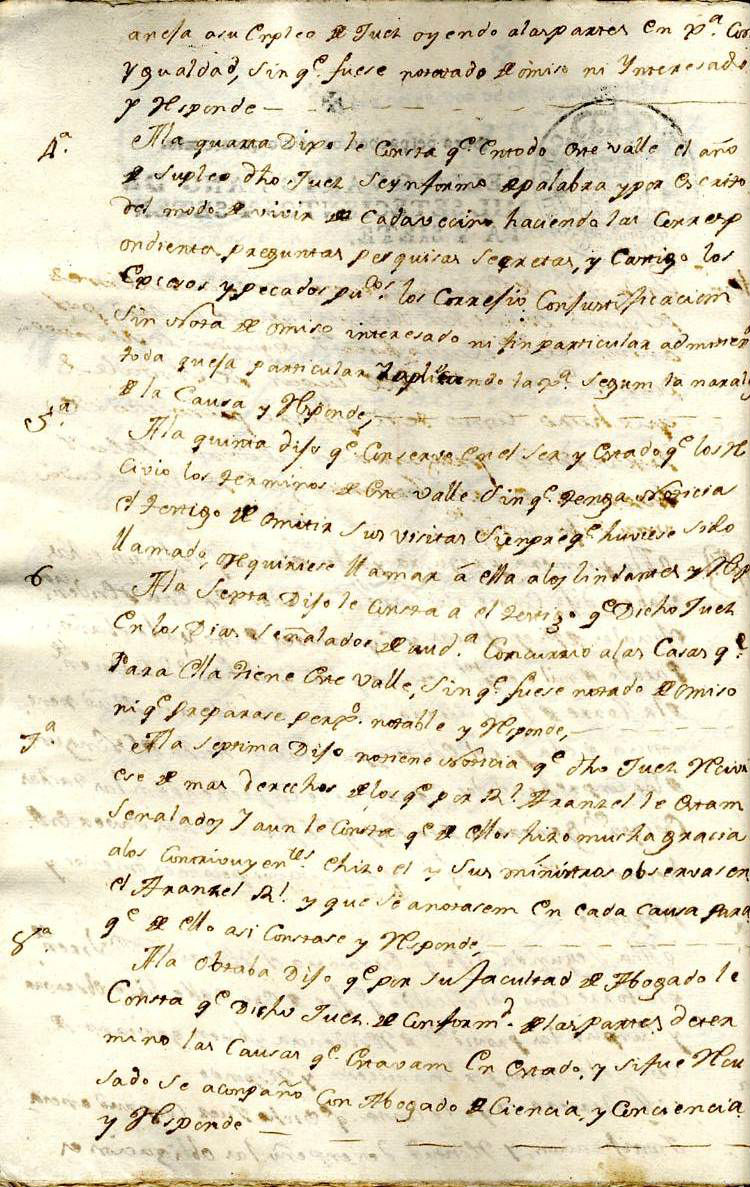 aneja a su Enpleo de Juez oyendo a las partes en p.ª Con
Ygualdad, sin q.e fuese notado de omiso ni Ynteresado
y Responde
4.ª A la quarta Dijo le Consta q.e en todo este valle el año
de supleo dho Juez se ynformo de palabra y por escrito
del modo de vivir de Cada vecino haciendo las Corresp
ondientes preguntas pesquisas secretas, y Castigo los
Excesos y pecados pu.cos los Correjio Con justificacion
sin Nota de omiso interesado ni fin particular admitien
toda queja particular y aplicando la p.ª segun la narale
de la Causa y Responde,
5.ª A la quinta dijo q.e Conservo en el ser y estado q.e los Re
civio los terminos de este valle sin q.e tenga Noticia
el testigo de omitir sus visitas sienpre q.e huviese sido
llamado, o requiriese llamar á ella a los lindantes y Resp
6 A la septa Dijo le Consta a el testigo q.e Dicho Juez
En los Dias señalados de aud.ª Concurrio a las Casas q.e
Para ella tiene este valle, sin q.e fuese notado de omiso
ni q.e preparase perj.o notable y Responde,
7.ª A la septima Dijo no tiene Noticia q.e dho Juez Recivi
ese de mas derechos de los q.e por Rl. Aranzel le estam
señalados Y aun le Consta q.e de ellos hizo mucha gracia
a los Contrivuyentes e hizo el y sus ministros observasen
el Aranzel Rl. y que se anotasem en cada causa para
q.e de ello asi Constase y Responde,
8.ª A la obtaba Dijo q.e por su facultad de Abogado le
Consta q.e Dicho Juez de Conform.d de las partes deter
mino las Causas q.e Estavam en estado, y si fue Recu
sado se aconpaño Con Abogado de Ciencia, y Conciencia
y Responde